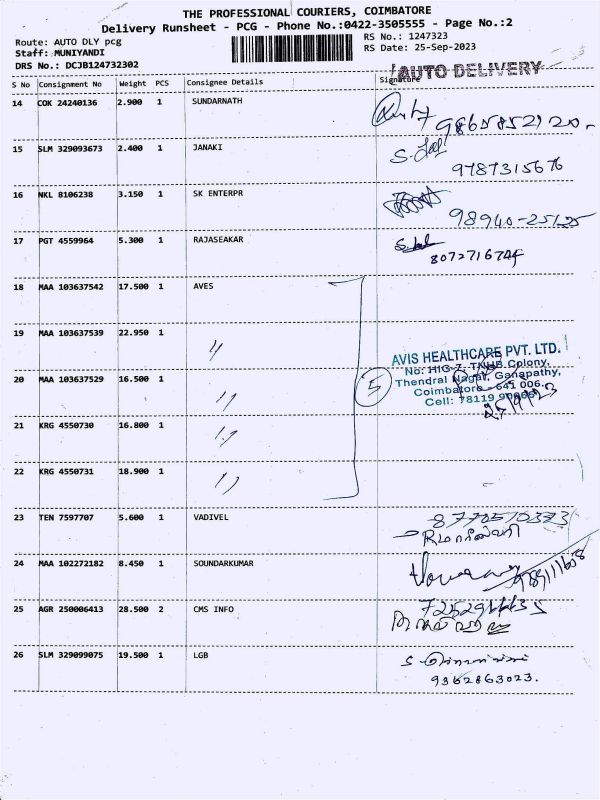 THE PROFESSIONAL COURIERS, COIMBATORE
Delivery Runsheet - PCG - Phone No.:0422-3505555 - Page No.:2
Route: AUTO DLY pcg
Staff: MUNIYANDI
DRS No.: DCJB124732302
RS No.: 1247323
RS Date: 25-Sep-2023
AUTO DELIVERY
S No Consignment No Weight PCS Consignee Details Signature
14 COK 24240136 2.900 1 SUNDARNATH
9865852120-
15 SLM 329093673 2.400 1 JANAKI
9787315676
16 NKL 8106238 3.150 1 SK ENTERPR
98940-25125
17 PGT 4559964 5.300 1 RAJASEAKAR
18 MAA 103637542 17.500 1 AVES
19 MAA 103637539 22.950 1
AVIS HEALTHCARE PVT. LTD.
No: HIG-7, TNHB Colony,
20 MAA 103637529 16.500 1 5
Thendral Nagar, Ganapathy,
Coimbatore - 641 006.
Cell: 78119
25/9/23
21 KRG 4550730 16.800 1
22 KRG 4550731 18.900 1
23 TEN 7597707 5.600 1 VADIVEL
24 MAA 102272182 8.450 1 SOUNDARKUMAR
25 AGR 250006413 28.500 2 CMS INFO
26 SLM 329099075 19.500 1 LGB
9362863023.